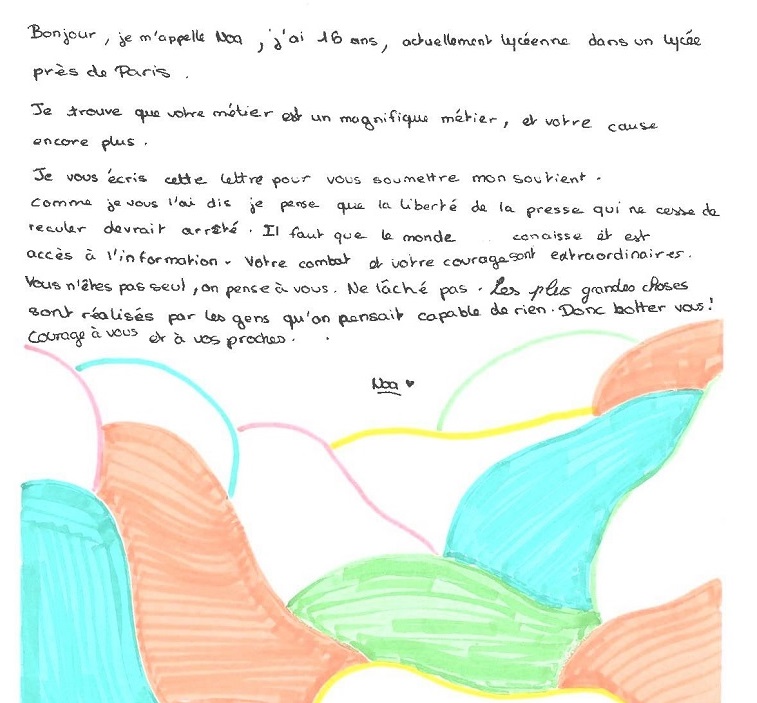 Bonjour, je m'appelle Noa, j'ai 16 ans, actuellement lycéenne dans un lycée
près de Paris.
Je trouve que votre métier est un magnifique métier, et votre cause
encore plus.
Je vous écris cette lettre pour vous soumettre mon soutient.
Comme je vous l'ai dis je pense que la liberté de la presse qui ne cesse de
reculer devrait arrêté. Il faut que le monde conaisse et est
accès à l'information. Votre combat et votre courage sont extraordinaires.
Vous n'êtes pas seul, on pense à vous. Ne lâché pas. Les plus grandes choses
sont réalisés par les gens qu'on pensait capable de rien. Donc batter vous!
Courage à vous et à vos proches.
Noa ♥